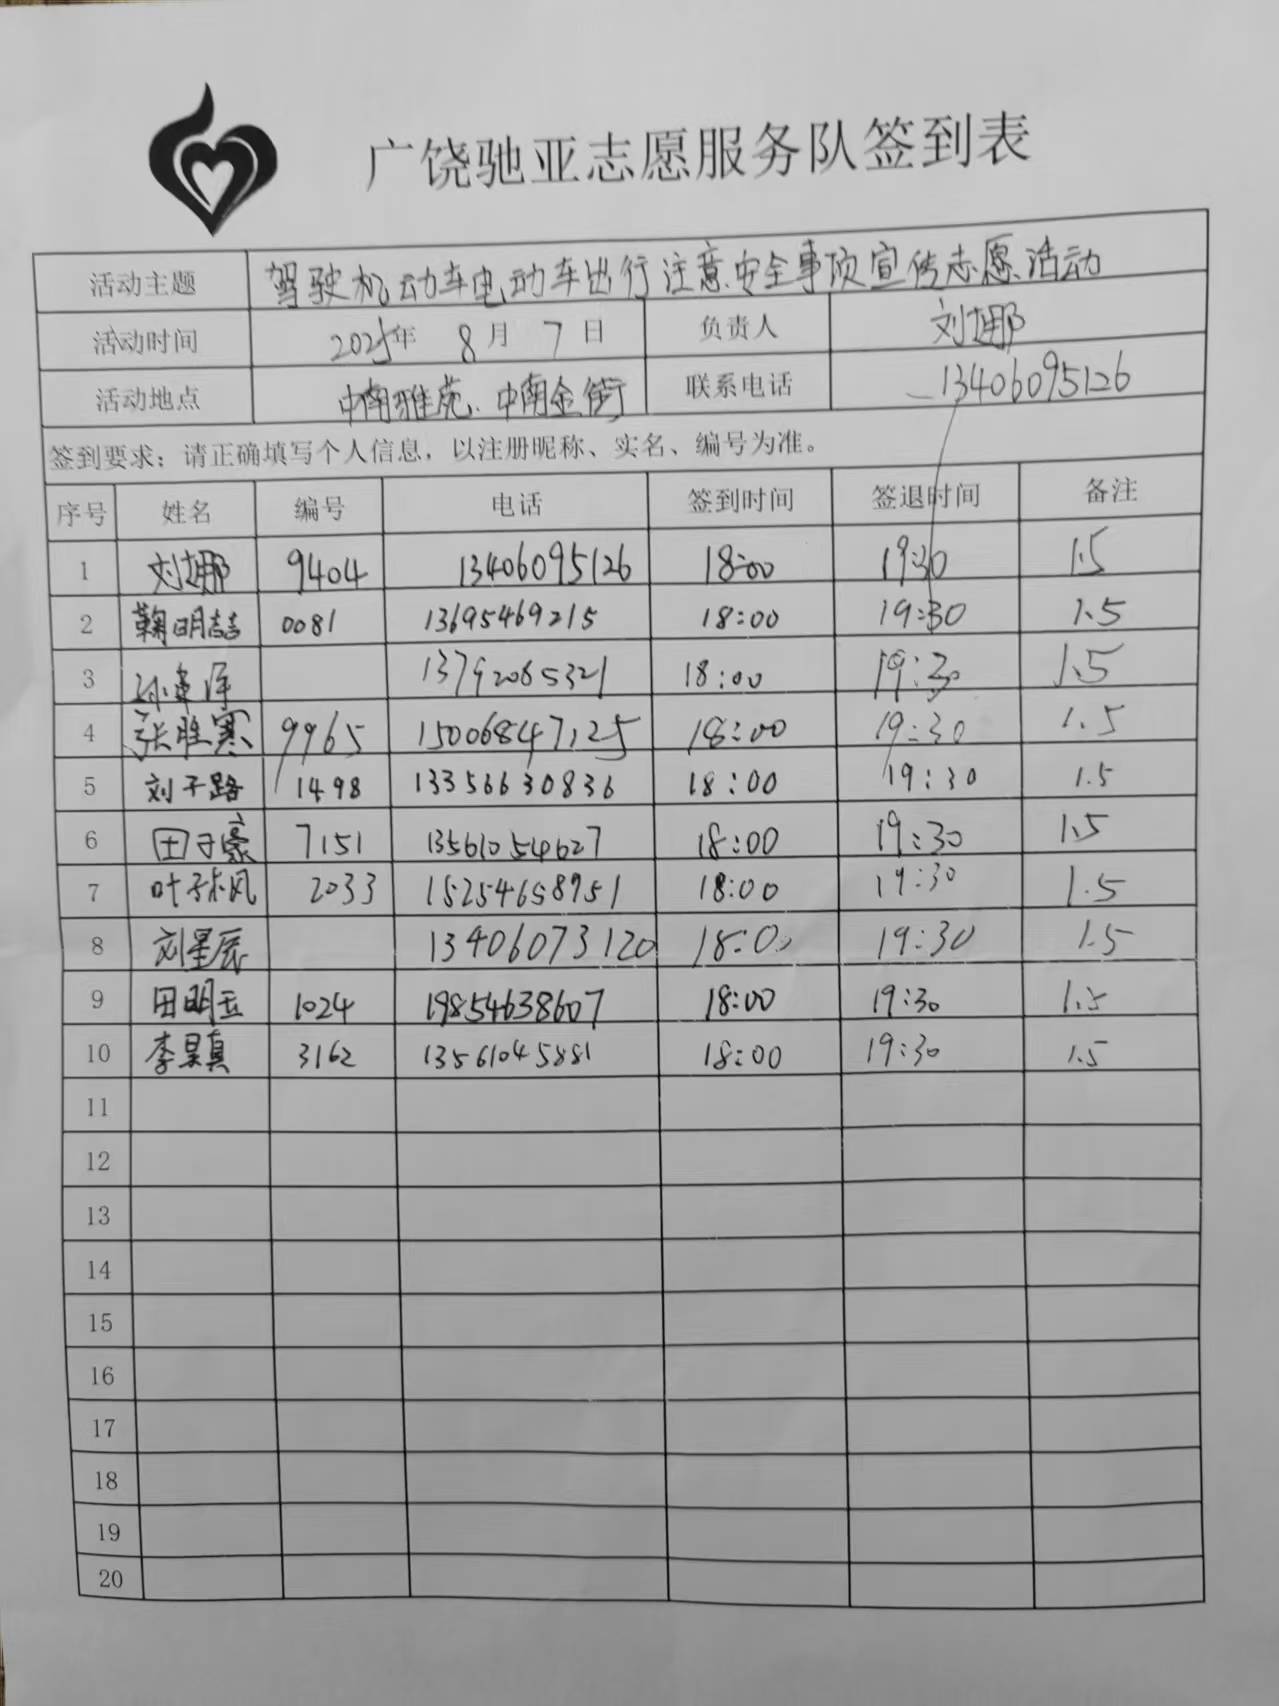 广饶驰亚志愿服务队签到表
活动主题 驾驶机动车电动车出行注意安全事项宣传志愿活动
活动时间 2025年 8月 7日 负责人 刘娜
活动地点 中南雅苑、中南金街 联系电话 13406095126
签到要求：请正确填写个人信息，以注册昵称、实名、编号为准。
序号 姓名 编号 电话 签到时间 签退时间 备注
1 刘娜 9404 13406095126 18:00 19:30 1.5
2 鞠明喆 0081 13695469215 18:00 19:30 1.5
3 13792085321 18:00 19:30 1.5
4 张胜寒 9965 15006847125 18:00 19:30 1.5
5 刘子路 1498 13356630836 18:00 19:30 1.5
6 田子豪 7151 13561054627 18:00 19:30 1.5
7 2033 15254658951 18:00 19:30 1.5
8 刘星辰 13406073120 18:00 19:30 1.5
9 田明玉 1024 19854638607 18:00 19:30 1.5
10 李昊真 3162 13561045881 18:00 19:30 1.5
11
12
13
14
15
16
17
18
19
20